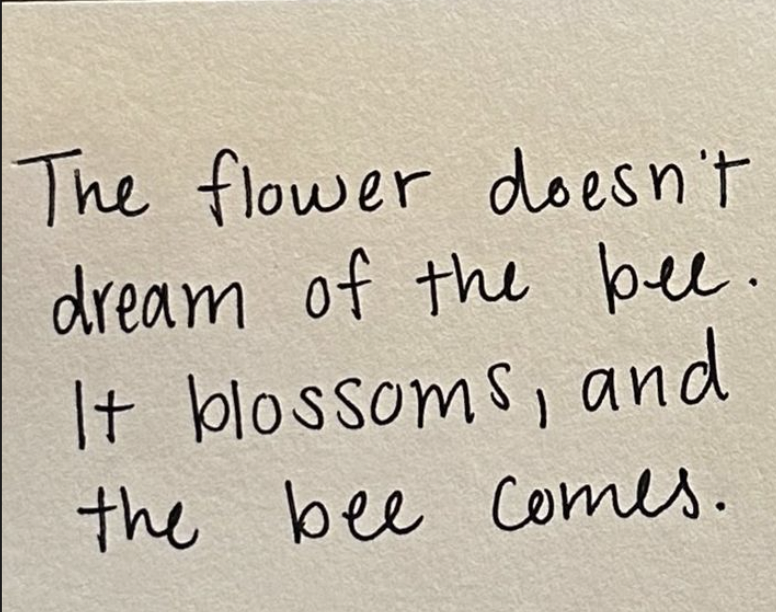 The flower doesn't
dream of the bee.
It blossoms, and
the bee comes.